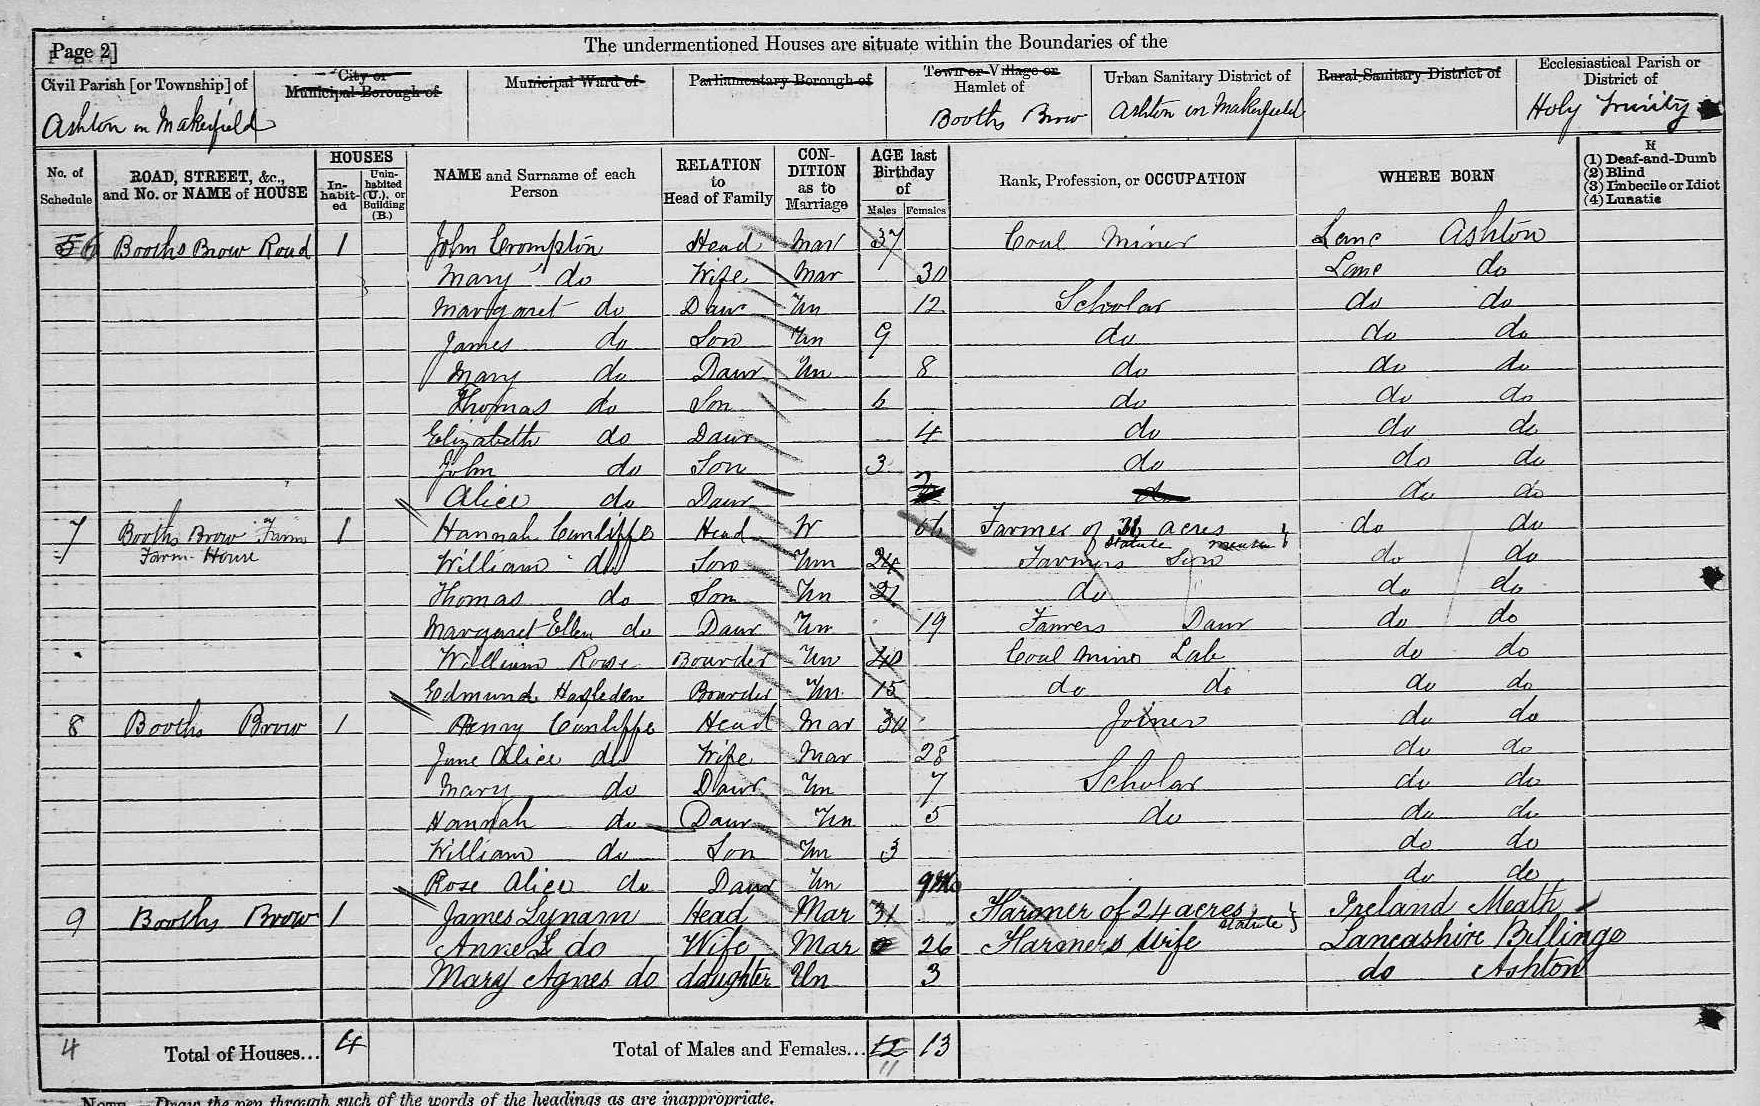 Page 2]
The undermentioned Houses are situate within the Boundaries of the
Civil Parish [or Township] of
City or Municipal Borough of
Municipal Ward of
Parliamentary Borough of
Town or Village or Hamlet of
Urban Sanitary District of
Rural Sanitary District of
Ecclesiastical Parish or District of
Ashton in Makerfield
Booths Brow
Ashton in Makerfield
Holy Trinity
No. of Schedule
ROAD, STREET, &c., and No. or NAME of HOUSE
HOUSES
In-habit-ed
Unin-habited (U.), or Building (B.)
NAME and Surname of each Person
RELATION to Head of Family
CON-DITION as to Marriage
AGE last Birthday of
Males
Females
Rank, Profession, or OCCUPATION
WHERE BORN
If
(1) Deaf-and-Dumb
(2) Blind
(3) Imbecile or Idiot
(4) Lunatic
6 Booths Brow Road 1 John Crompton Head Mar 37 Coal Miner Lanc Ashton
Mary do Wife Mar 30 Lanc do
Margaret do Daur Un 12 Scholar do do
James do Son Un 9 do do do
Mary do Daur Un 8 do do do
Thomas do Son 6 do do do
Elizabeth do Daur 4 do do do
John do Son 3 do do do
Alice do Daur 2 do do do
7 Booths Brow Farm 1 Hannah Cunliffe Head W 66 Farmer of acres do do
Farm House statute measure
William do Son Un 24 Farmers Son do do
Thomas do Son Un 21 do do do
Margaret Ellen do Daur Un 19 Farmers Daur do do
William Rose Boarder Un 40 Coal Mine Lab do do
Edmund Hasleden Boarder Un 15 do do do do
8 Booths Brow 1 Henry Cunliffe Head Mar 30 Joiner do do
Jane Alice do Wife Mar 28 do do
Mary do Daur Un 7 Scholar do do
Hannah do Daur Un 5 do do do
William do Son Un 3 do do
Rose Alice do Daur Un 9 Mo do do
9 Booths Brow 1 James Lynam Head Mar 31 Farmer of 24 acres Statute Ireland Meath
Anne E do Wife Mar 26 Farmers Wife Lancashire Billinge
Mary Agnes do daughter Un 3 do Ashton
4 Total of Houses... 4 Total of Males and Females... 12 13
11
NOTE.—Draw the pen through such of the words of the headings as are inappropriate.